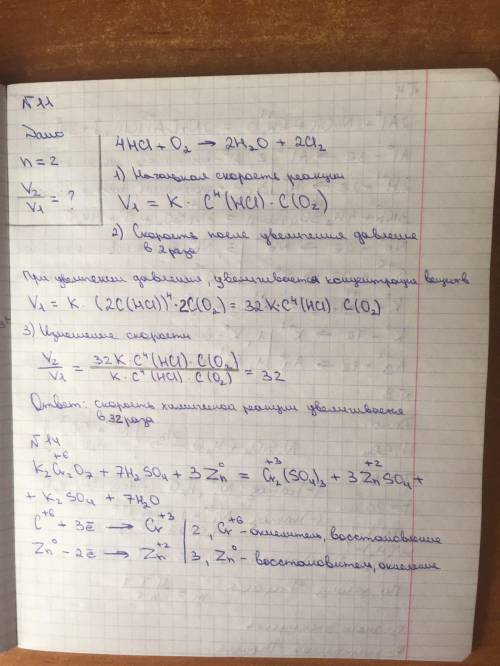 № 11
Дано
n = 2
V₂/V₁ = ?
4HCl + O₂ → 2H₂O + 2Cl₂
1) Начальная скорость реакции
V₁ = K · C⁴(HCl) · C(O₂)
2) Скорость после увеличения давление
в 2 раза
При увеличении давления, увеличивается концентрация веществ
V₁ = K · (2C(HCl))⁴ · 2C(O₂) = 32K · C⁴(HCl) · C(O₂)
3) Изменение скорости
V₂/V₁ = 32K · C⁴(HCl) · C(O₂) / K · C⁴(HCl) · C(O₂) = 32
Ответ: скорость химической реакции увеличивается
в 32 раза
№ 14
K₂Cr⁺⁶₂O₇ + 7H₂SO₄ + 3Zn⁰ = Cr⁺³₂(SO₄)₃ + 3Zn⁺²SO₄ +
+ K₂SO₄ + 7H₂O
C⁺⁶ + 3ē → Cr⁺³ | 2, Cr⁺⁶ - окислитель, восстановление
Zn⁰ - 2ē → Zn⁺² | 3, Zn⁰ - восстановитель, окисление